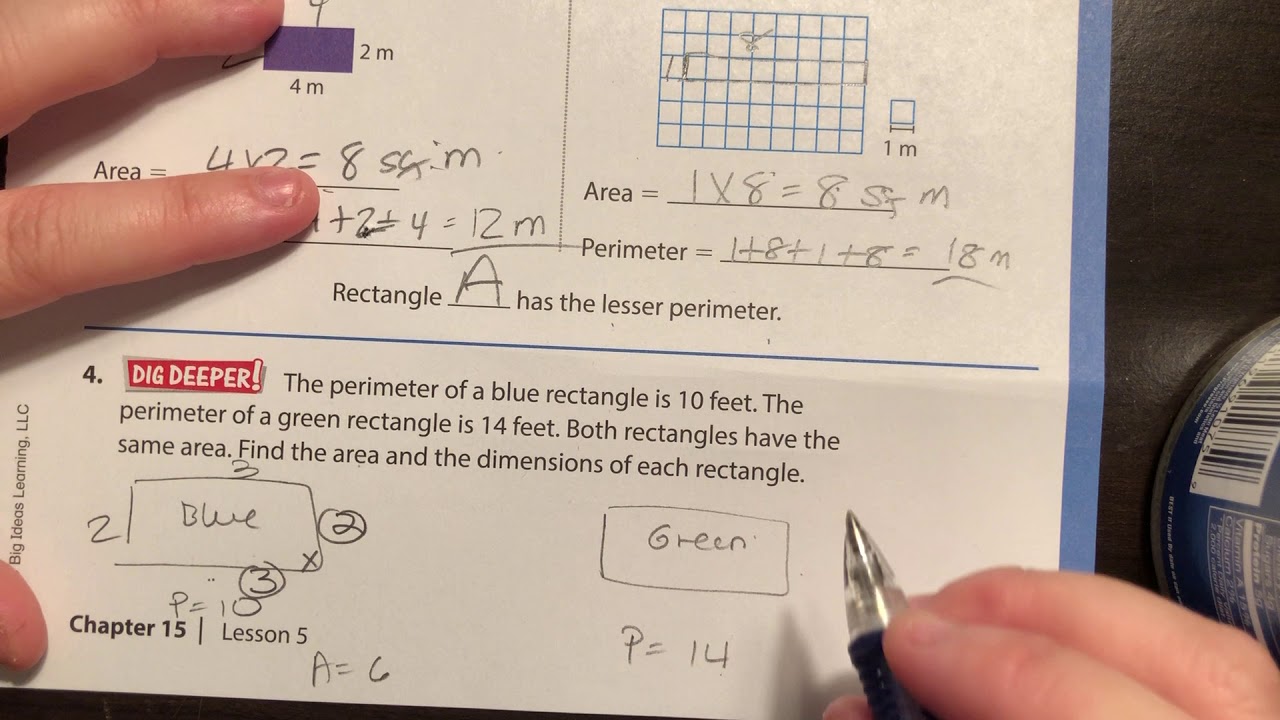 4
2 m
4 m
Area = 4x2 = 8 sq. m
+2+4 = 12 m
8
1
1 m
Area = 1 X 8 = 8 sq m
Perimeter = 1+8+1+8 = 18 m
Rectangle A has the lesser perimeter.
4. DIG DEEPER! The perimeter of a blue rectangle is 10 feet. The
perimeter of a green rectangle is 14 feet. Both rectangles have the
same area. Find the area and the dimensions of each rectangle.
3
2 Blue 2
x
3
P= 10
A= 6
Green
P= 14
Chapter 15 | Lesson 5
Big Ideas Learning, LLC